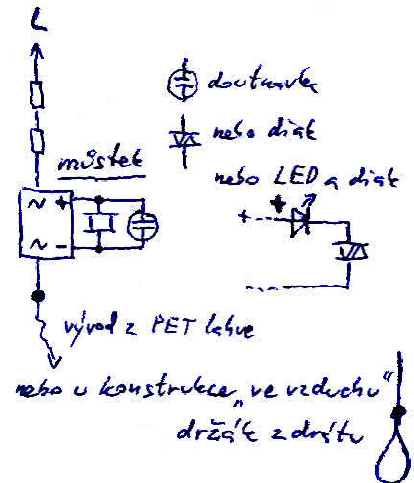 L
doutnavka
nebo diak
můstek
nebo LED a diak
~ +
~ -
+
+
vývod z PET lahve
nebo u konstrukce „ve vzduchu“
držák z drátu